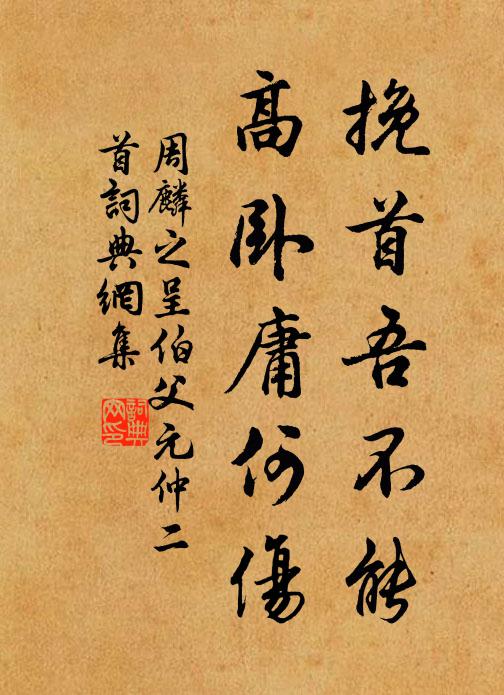 挽首吾不能
高卧庸何傷
周麟之呈伯父元仲二
首詞典網集
詞典網印